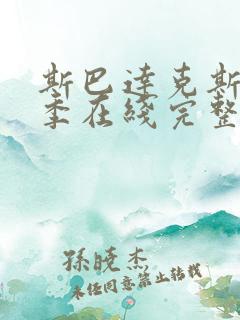 斯巴达克斯
季在线完整
孙晓杰
未经同意禁止转载